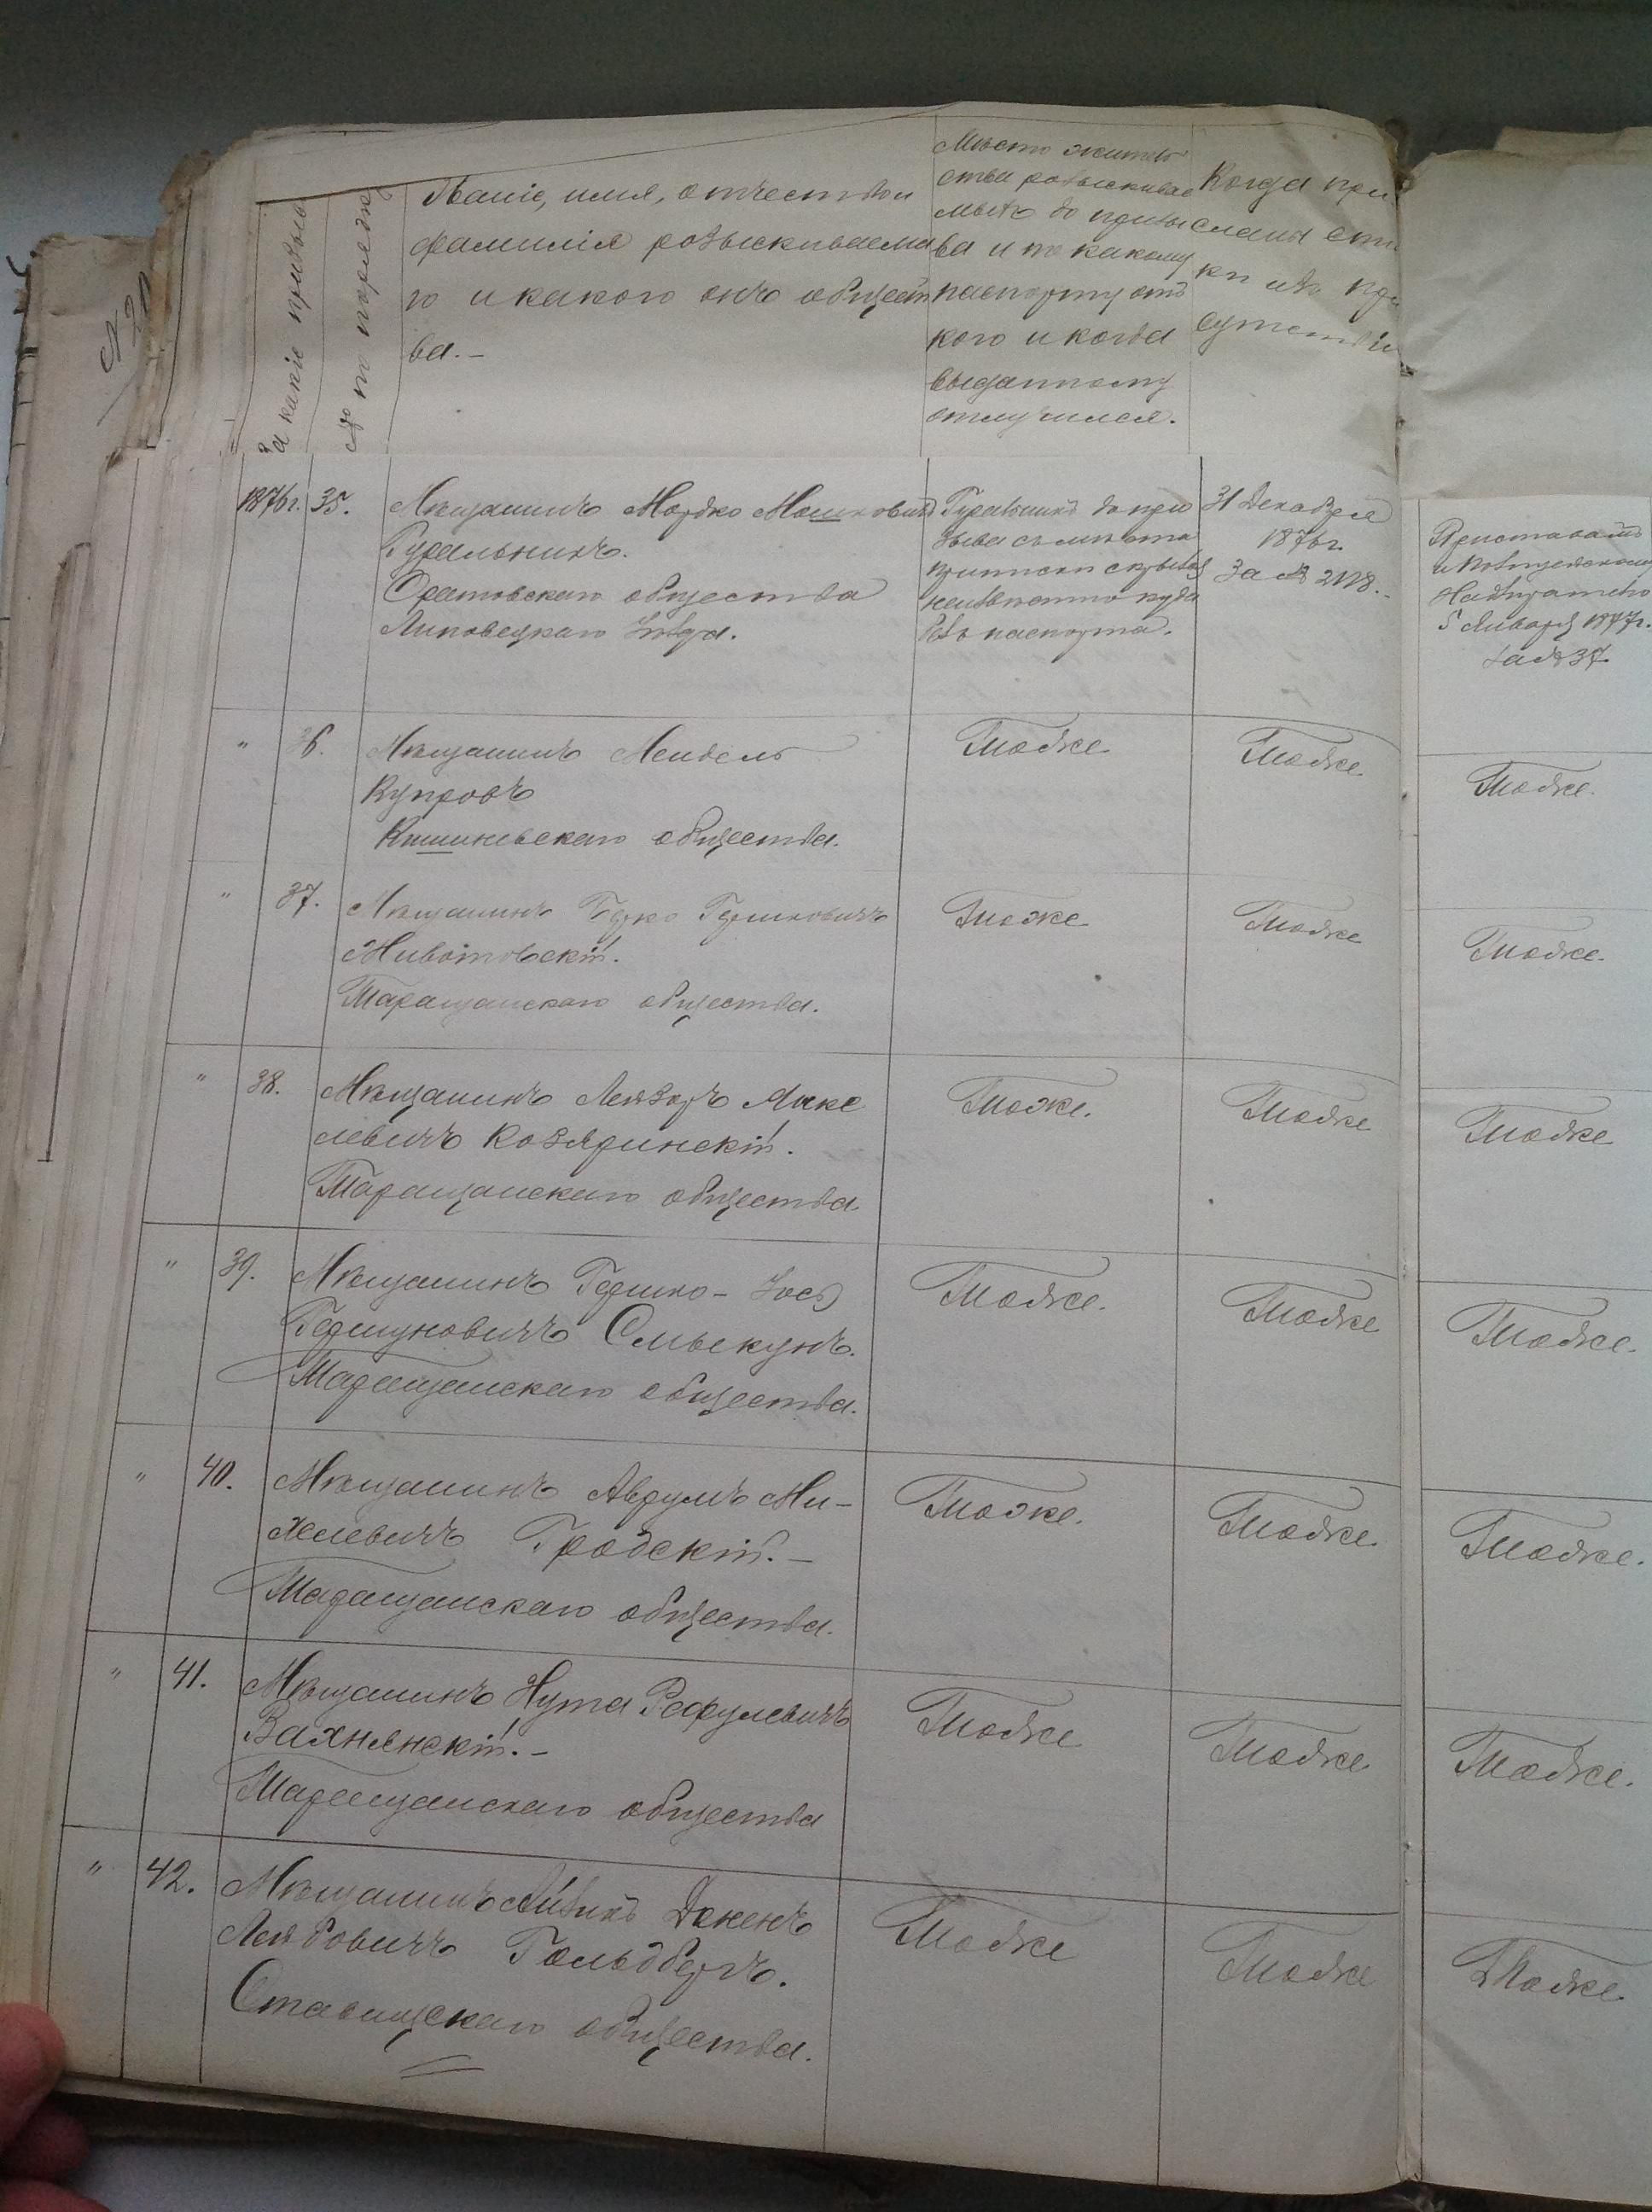 За какіе призывы
№ по порядку
Званіе, имя, отчество и
фамилія розыскиваема
го и какого онъ общест
ва.-
Мѣсто житель
ства розыскивае
мыхъ до призы
ва и по какому
паспорту отъ
кого и когда
выданному
отлучился.
Когда при
сланы спи
ки изъ при
сутствія
1876г. 35.
Мѣщанинъ Мордко Мошковичъ
Гуральникъ.
Оратовскаго общества
Липовецкаго уѣзда.
Гуральникъ до при
зыва съ мѣста
приписки скрылся
неизвѣстно куда
безъ паспорта.
31 Декабря
1876г.
За № 2128.
Приставамъ
и Полицейскому
Надзирателю
5 Января 1877г.
за № 37.
" 36.
Мѣщанинъ Мендель
Купровъ
Кишиневскаго общества.
Тоже.
Тоже.
Тоже.
" 37.
Мѣщанинъ Герко Гершковичъ
Животовскій.
Таращанскаго общества.
Тоже
Тоже
Тоже.
" 38.
Мѣщанинъ Лейзоръ Янке
левичъ Козяринскій.
Таращанскаго общества.
Тоже.
Тоже
Тоже
" 39.
Мѣщанинъ Гершко-Іось
Гершуновичъ Смыкунъ.
Таращанскаго общества.
Тоже.
Тоже
Тоже.
" 40.
Мѣщанинъ Аврумъ Ми-
хелевичъ Гродскій.-
Таращанскаго общества.
Тоже.
Тоже.
Тоже.
" 41.
Мѣщанинъ Нута Рефулевичъ
Вахнянскій.-
Таращанскаго общества
Тоже
Тоже
Тоже.
" 42.
Мѣщанинъ Айзикъ Донень
Лейбовичъ Гольдбергъ.
Ставищскаго общества.
Тоже
Тоже
Тоже.